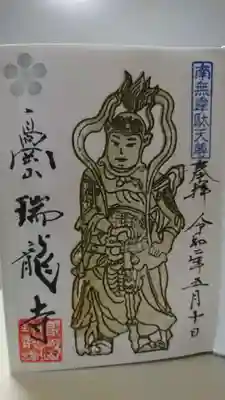 南無韋駄天尊
奉拝 令和二年五月十日
高岡山
瑞龍寺